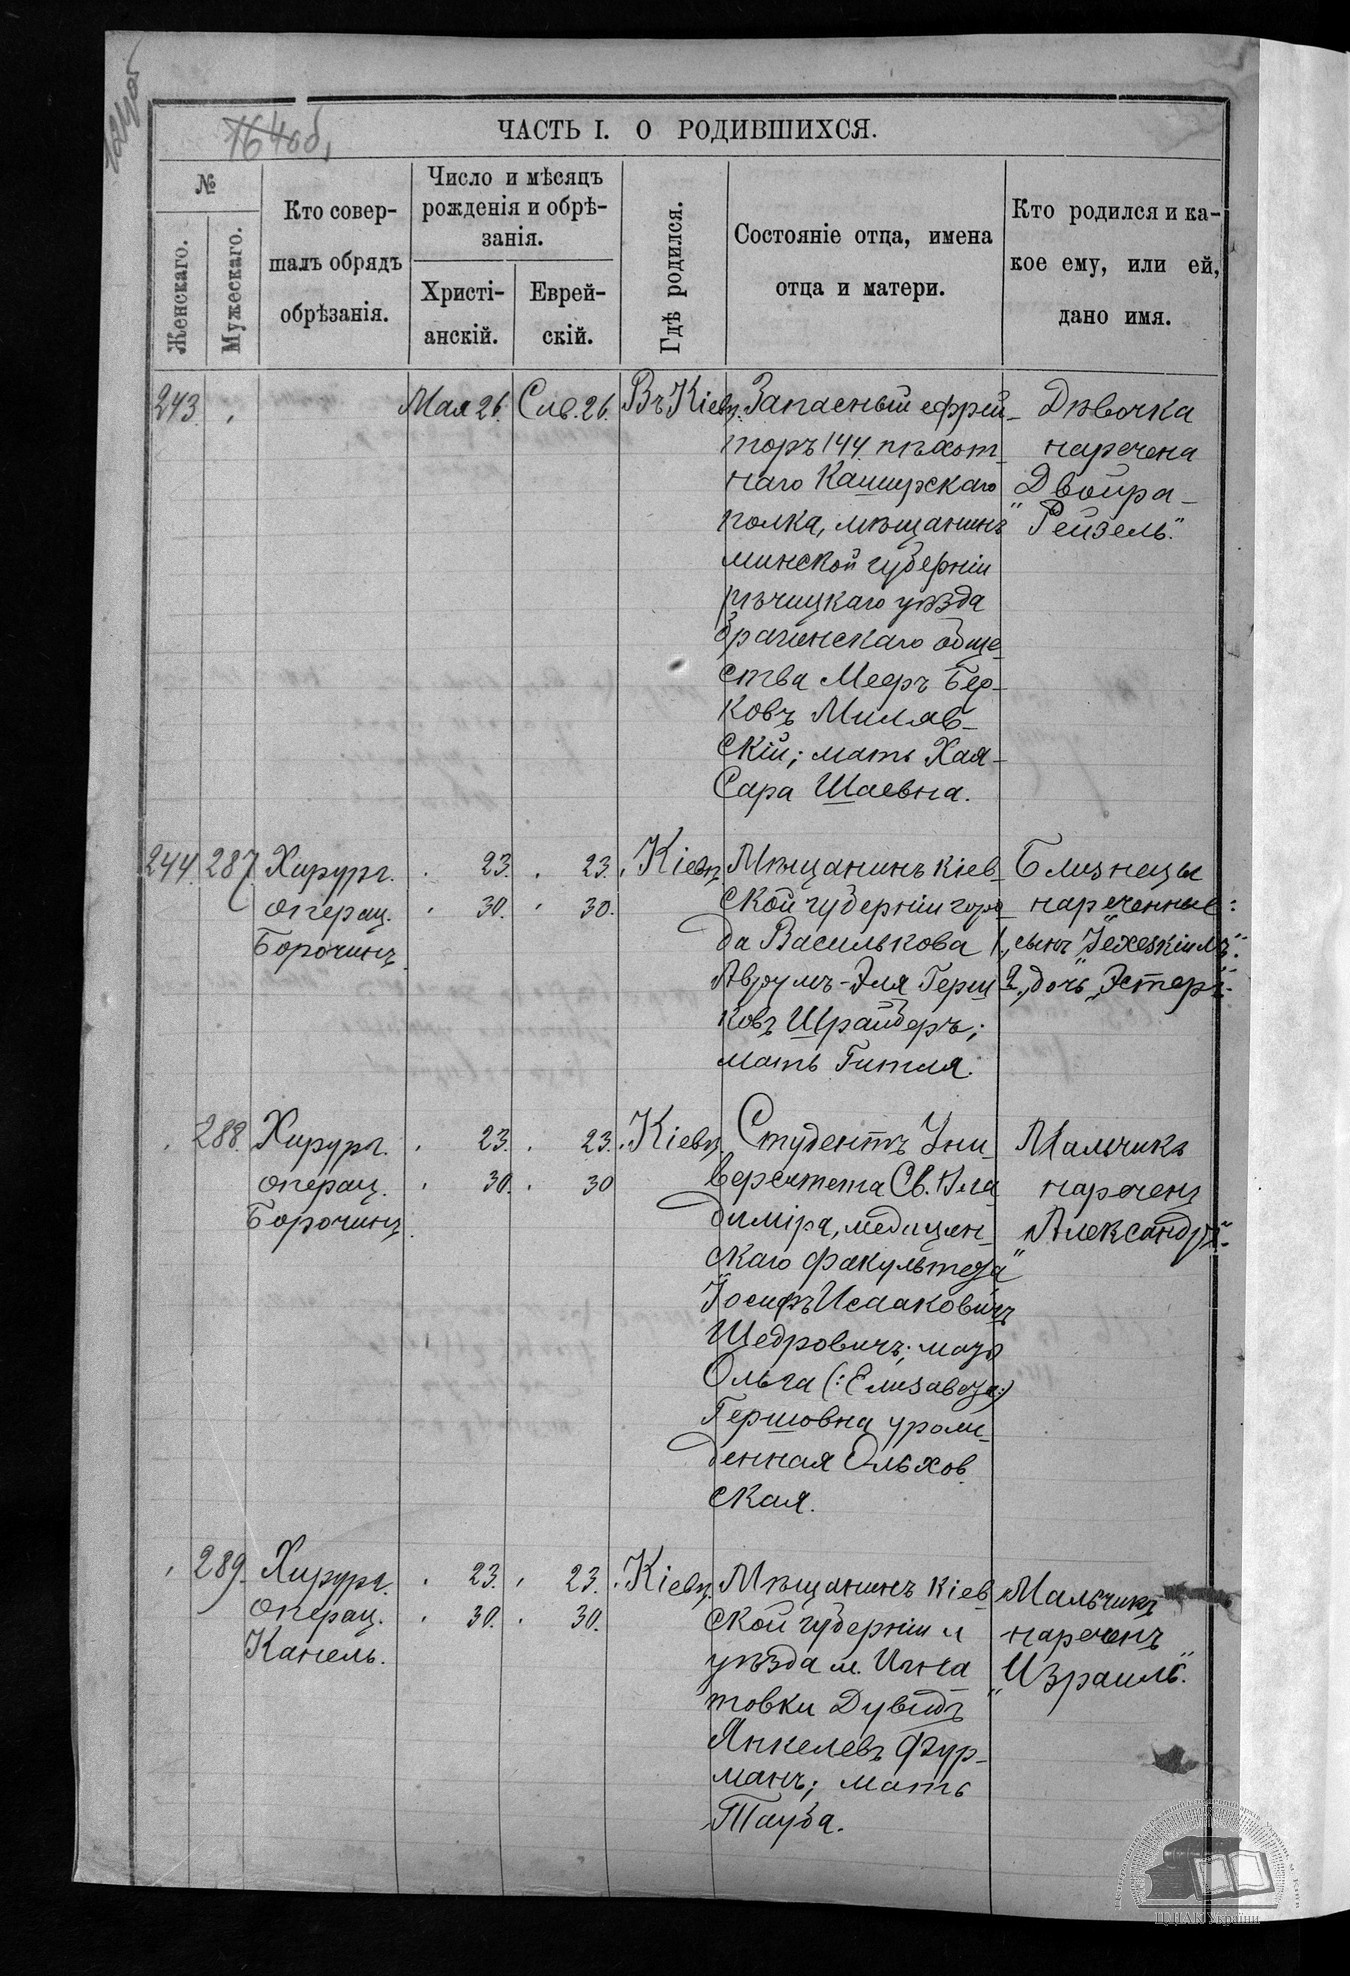 164об,
ЧАСТЬ I. О РОДИВШИХСЯ.
№
Женскаго.
Мужескаго.
Кто совер-
шалъ обрядъ
обрѣзанія.
Число и мѣсяцъ
рожденія и обрѣ-
занія.
Христі-
анскій.
Еврей-
скій.
Гдѣ родился.
Состояніе отца, имена
отца и матери.
Кто родился и ка-
кое ему, или ей,
дано имя.
243.
Мая 26.
Сив. 26.
Въ Кіевѣ.
Запасный ефрей-
торъ 144 пѣхот-
наго Каширскаго
полка, мѣщанинъ
минской губерніи
рѣчицкаго уѣзда
брагинскаго обще-
ства Мееръ Бер-
ковъ Миляв-
скій; мать Хая-
Сара Шаевна.
Дѣвочка
наречена
Двойра-
"Рейзель".
244. 287.
Хирург.
операц.
Борочинъ.
23. 23.
30. 30.
Кіевѣ
Мѣщанинъ кіев-
ской губерніи горо-
да Василькова
Аврумъ-Эля Герш
ковъ Шрайберъ;
мать Гитля.
Близнецы
нареченные:
1, сынъ "Іехескіилъ".
2, дочь "Эстеръ".
288.
Хирург.
операц.
Борочинъ.
23. 23.
30. 30
Кіевѣ.
Студентъ Уни-
верситета Св. Вла
диміра, медицин-
скаго факультета
Іосифъ Исааковичъ
Щедровичъ; мать
Ольга (:Елизавета:)
Гершовна урож-
денная Ольхов
ская.
Мальчикъ
нареченъ
"Александръ".
289.
Хирург.
операц.
Канель.
23. 23.
30. 30.
Кіевѣ.
Мѣщанинъ кіев
ской губерніи и
уѣзда м. Игна
товки Дувидъ
Янкелевъ Фур-
манъ; мать
Тауба.
Мальчикъ
нареченъ
"Израиль".
ЦДІАК України